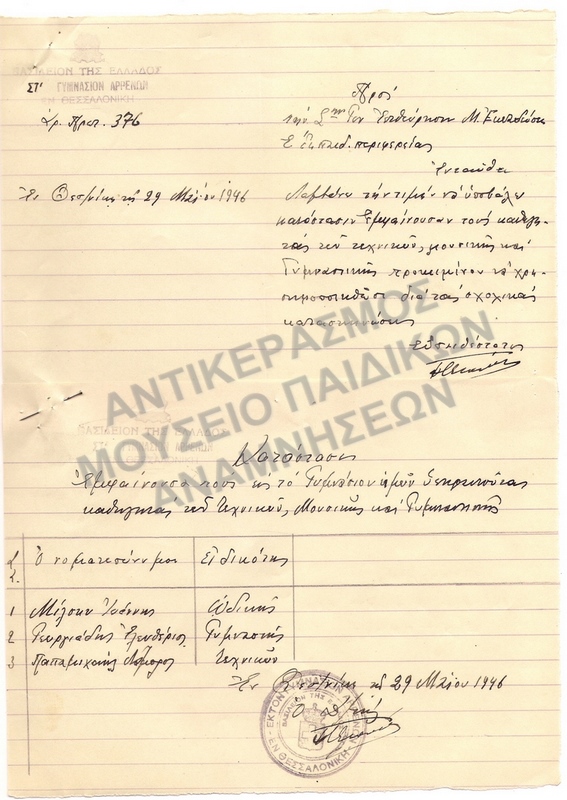 ΒΑΣΙΛΕΙΟΝ ΤΗΣ ΕΛΛΑΔΟΣ
ΣΤ' ΓΥΜΝΑΣΙΟΝ ΑΡΡΕΝΩΝ
ΘΕΣΣΑΛΟΝΙΚΗ
Ἀρ. Πρωτ. 376
Πρός
τήν Ἐπιθεώρησιν Μ. Ἐκπαιδεύσεως
περιφερείας
Ἐνταῦθα
Ἐν Θεσ/νίκῃ τῇ 29 Μαΐου 1946
Λαμβάνω τήν τιμήν νά ὑποβάλω
κατάστασιν ἐμφαίνουσαν τούς καθηγη-
τάς τῶν τεχνικῶν, μουσικῆς καί
Γυμναστικῆς προκειμένου νά χρη-
σιμοποιηθῶσι διά τάς σχολικάς
κατασκηνώσεις
Εὐπειθέστατος
ΑΝΤΙΚΕΡΑΣΜΟΣ
ΜΟΥΣΕΙΟ ΠΑΙΔΙΚΩΝ
ΑΝΑΜΝΗΣΕΩΝ
ΒΑΣΙΛΕΙΟΝ ΤΗΣ ΕΛΛΑΔΟΣ
ΣΤ' ΓΥΜΝΑΣΙΟΝ ΑΡΡΕΝΩΝ
ΘΕΣΣΑΛΟΝΙΚΗ
Κατάστασις
Ἐμφαίνουσα τούς εἰς τό Γυμνάσιον ἡμῶν ὑπηρετοῦντας
καθηγητάς τῶν Τεχνικῶν, Μουσικῆς καί Γυμναστικῆς
Ὀνοματεπώνυμον Εἰδικότης
1 Ἰωάννης Ὠδικῆς
2 Γεωργιάδης Ἐλευθέριος Γυμναστικῆς
3 Παπαμιχαήλ Τεχνικῶν
Ἐν Θεσ/νίκῃ τῇ 29 Μαΐου 1946
ΒΑΣΙΛΕΙΟΝ ΤΗΣ
ΕΚΤΟΝ ΓΥΜΝΑΣΙΟΝ ΑΡΡΕΝΩΝ
ΕΝ ΘΕΣΣΑΛΟΝΙΚΗ